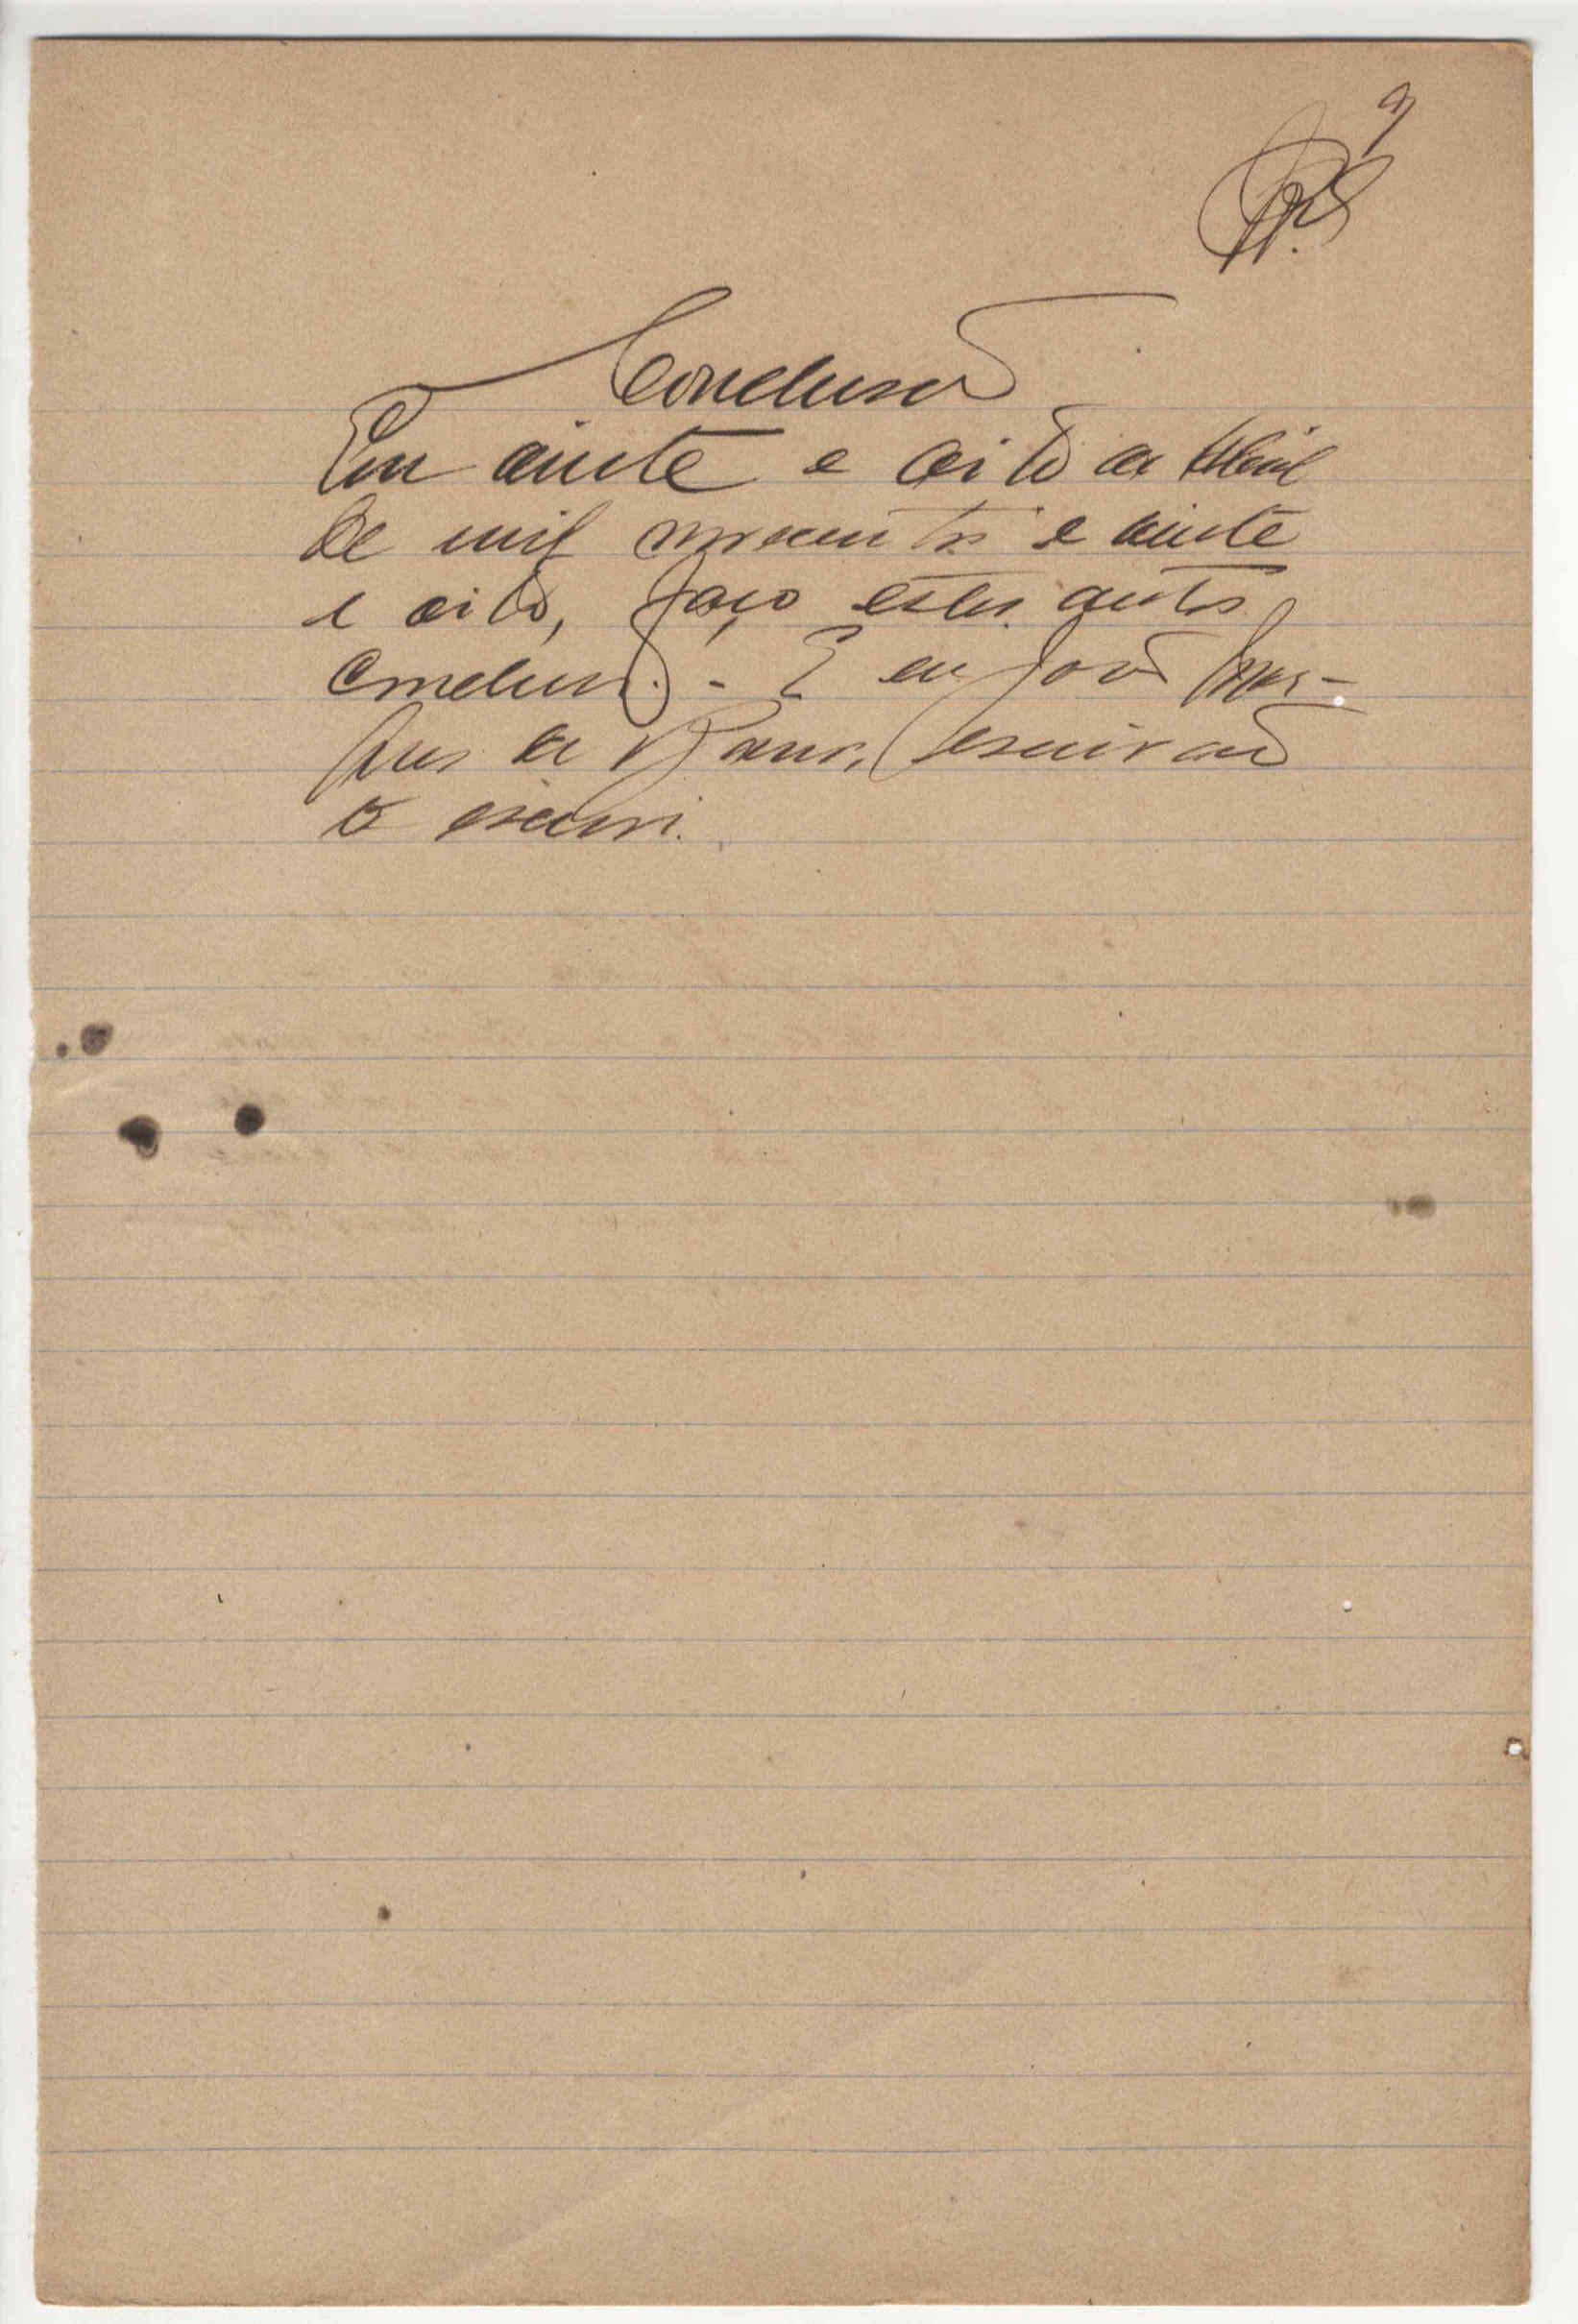 9
Conclusão
Em vinte e oito de Abril
de mil novecentos e vinte
e oito, faço estes autos
conclusos. - E eu João
de escrivão
o escrevi.